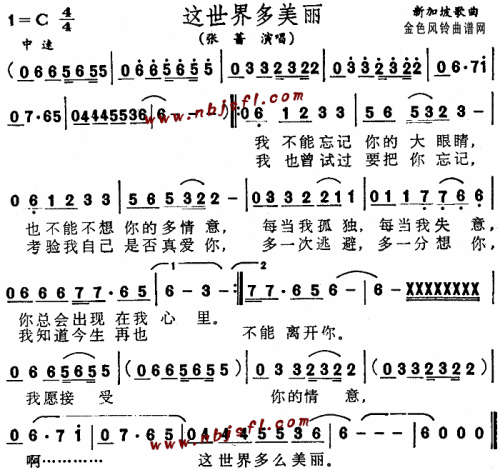 这世界多美丽
1=C 4/4
中速
(张蔷 演唱)
新加坡歌曲
金色风铃曲谱网
(0665655 | 0665655 | 03332322 | 03332322 | 06·7i |
07·65 | 04445536 | 6 - - -) ‖: 06 1233 | 56 5323 - |
www.nbjsfl.com
我 不能忘记 你的 大眼睛,
我 也曾试过 要把 你 忘记,
06 1233 | 565322 - | 03332211 | 0117766 |
也不能不想 你的多情意, 每当我孤独, 每当我失意,
考验我自己 是否真爱你, 多一次逃避, 多一分想你,
0666677 | 77·65 | 6 - 3 - :‖ 77·65 | 56 - 6 - | 6 - XXXXXXXX |
1
2
你总会出现 在我 心 里。
我知道今生 再也 不能 离开你。
0665655 | (0665655) | 03332322 | (03332322) |
我愿接 受 你的情 意,
06·7i | 07·65 | 04445536 | 6 - - - | 6000 ‖
www.nbjsfl.com
啊………… 这世界多么美丽。